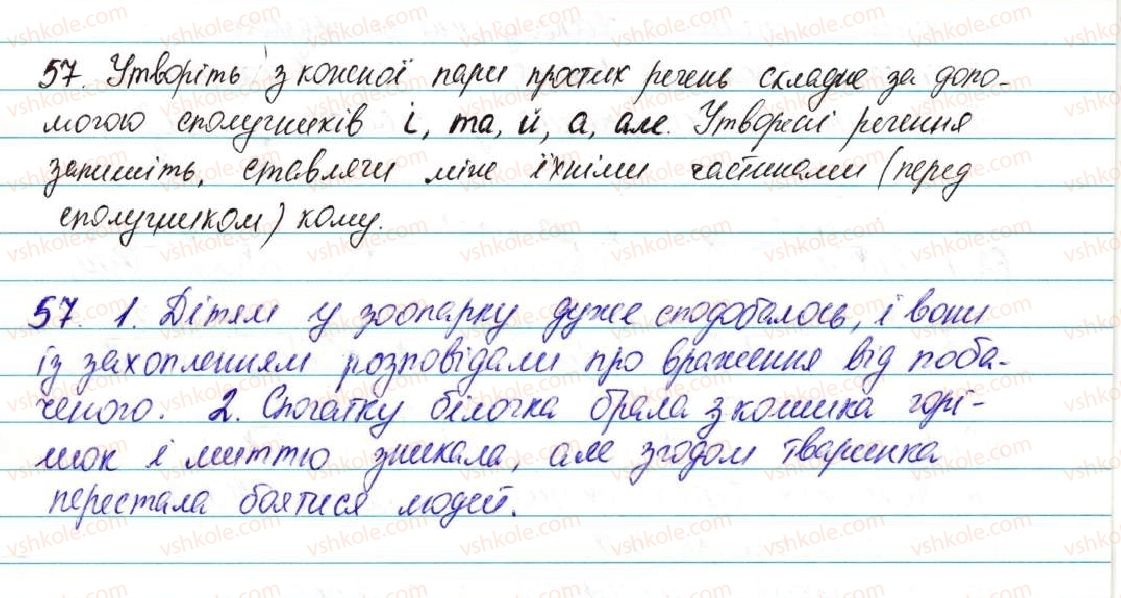 57. Утворіть з кожної пари простих речень складне за допо-
могою сполучників і, та, й, а, але. Утворені речення
запишіть, ставлячи між їхніми частинами (перед
сполучником) кому.
57. 1. Дітям у зоопарку дуже сподобалось, і вони
із захопленням розповідали про враження від поба-
ченого. 2. Спочатку білочка брала з кошика горі-
шок і миттю зникала, але згодом тваринка
перестала боятися людей.